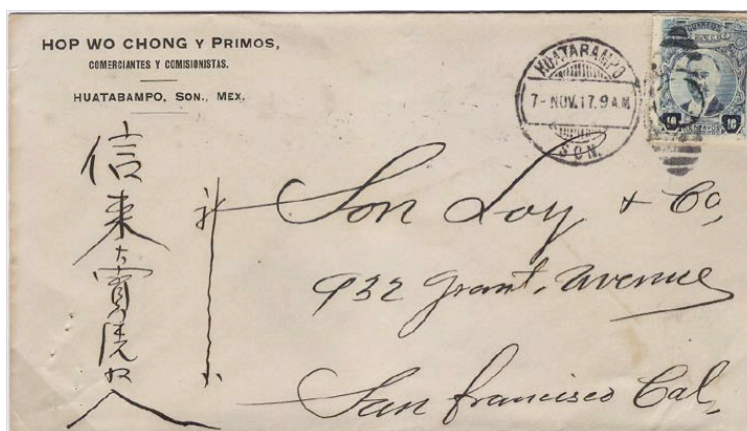 HOP WO CHONG Y PRIMOS,
COMERCIANTES Y COMISIONISTAS.
HUATABAMPO, SON., MEX.
HUATABAMPO
7- NOV.17.9 AM
SON.
CORREOS
10 10
Son Loy & Co,
932 Grant, Avenue
San Francisco Cal,
信來大寶號收入